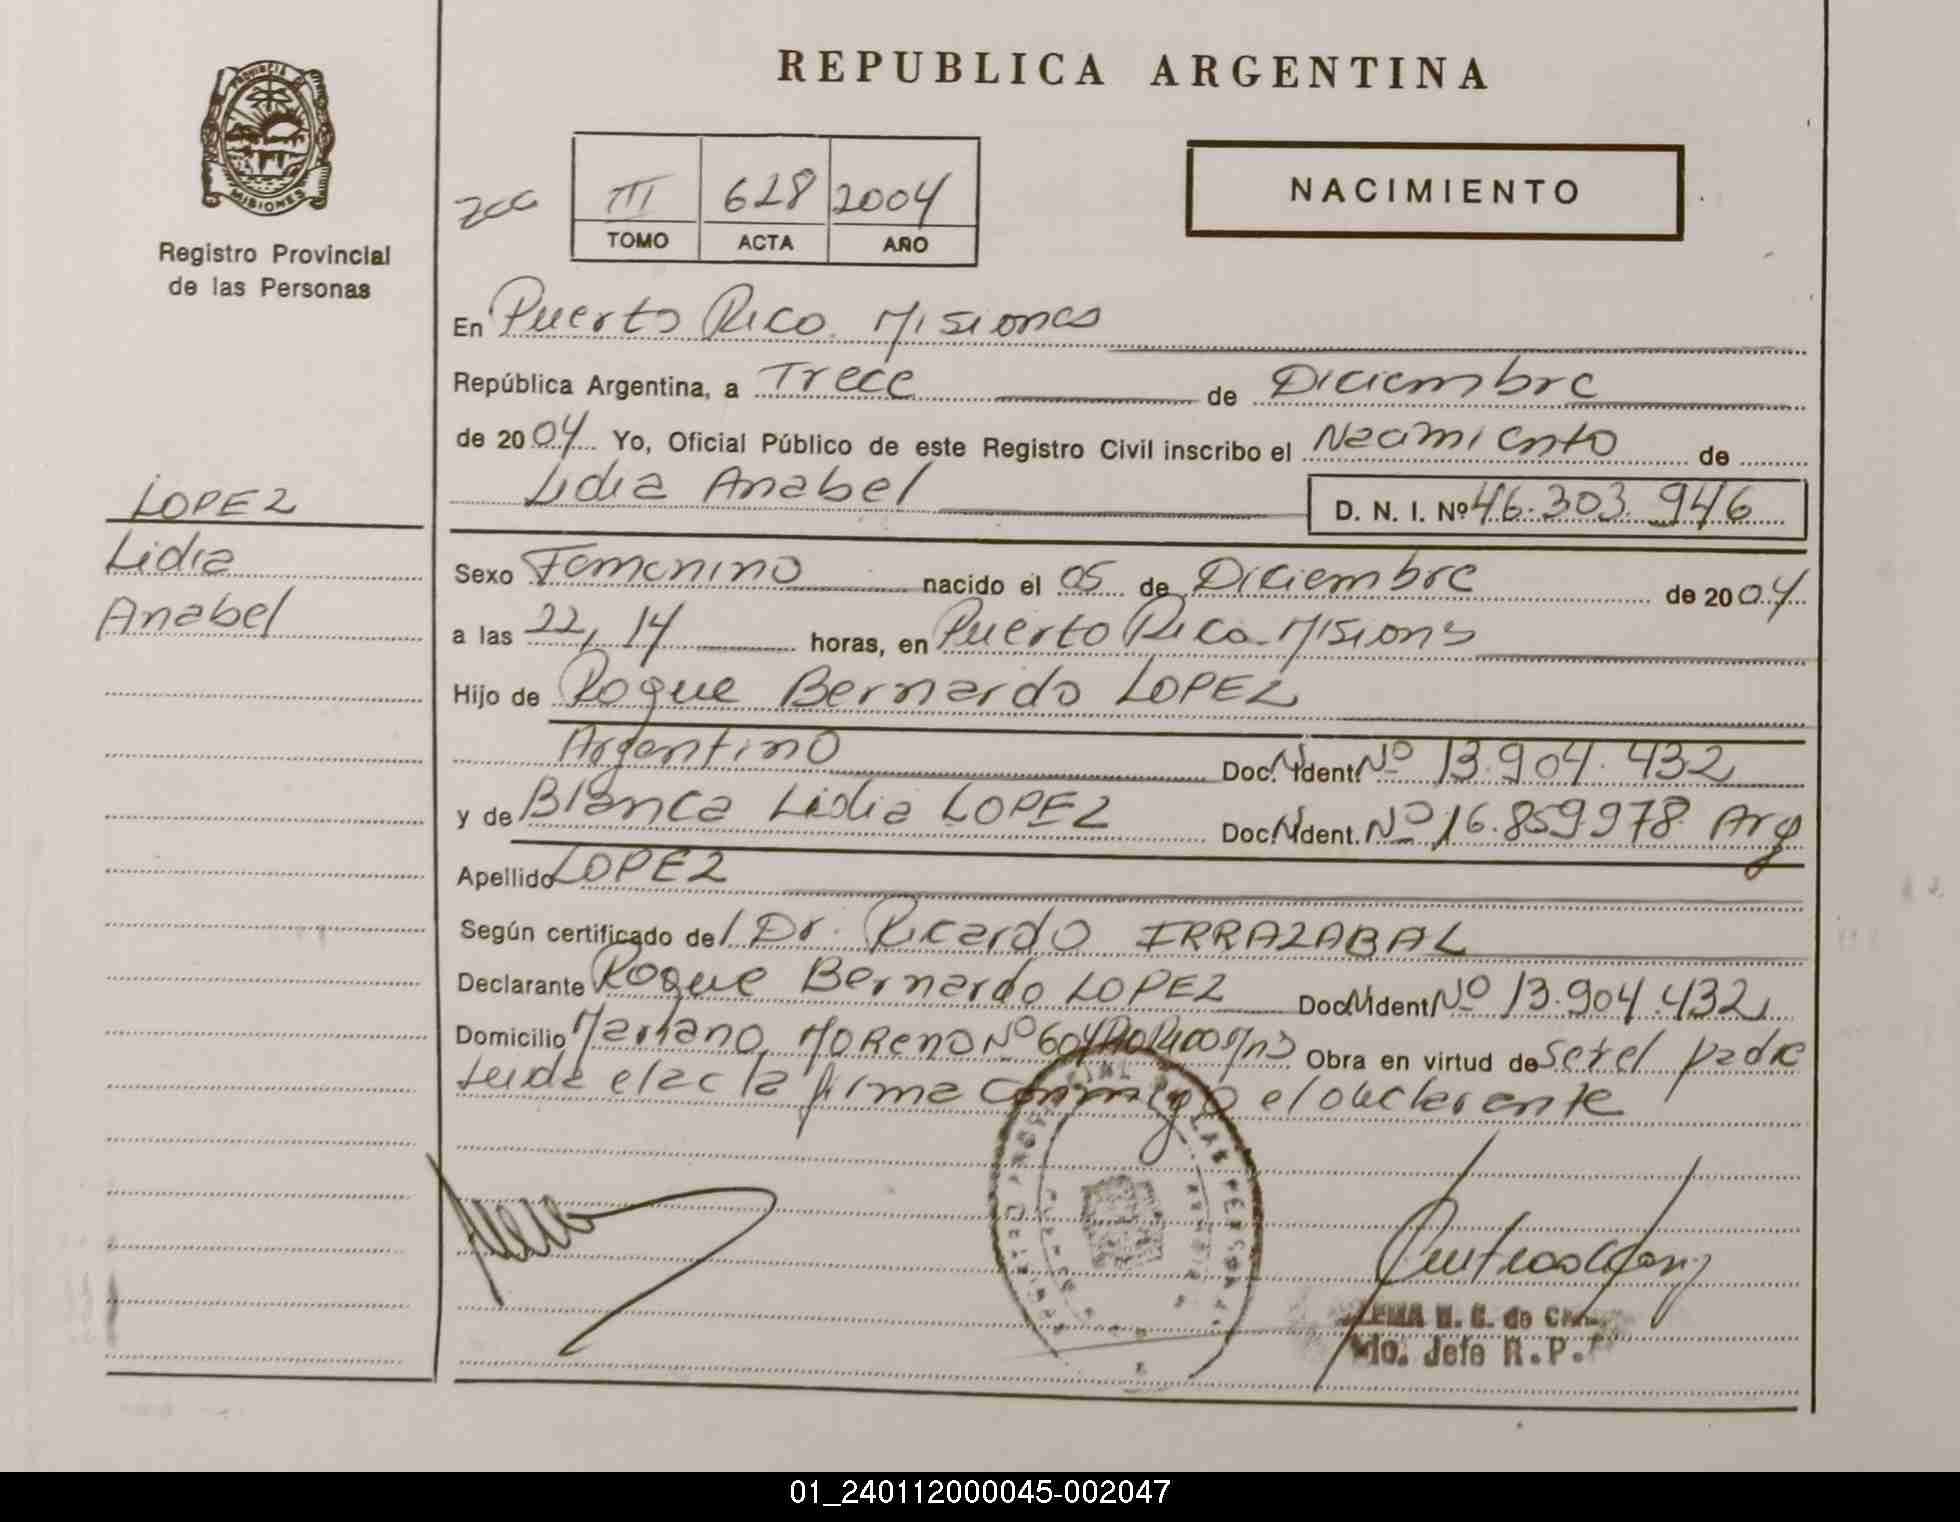 REPUBLICA ARGENTINA
PROVINCIA
MISIONES
Registro Provincial
de las Personas
III 628 2004
TOMO ACTA AÑO
NACIMIENTO
En Puerto Rico Misiones
República Argentina, a Trece de Diciembre
de 2004 Yo, Oficial Público de este Registro Civil inscribo el Nacimiento de
Lidia Anabel D. N. I. Nº 46.303.946
LOPEZ
Lidia
Anabel
Sexo Femenino nacido el 05 de Diciembre de 2004
a las 22,14 horas, en Puerto Rico Misions
Hijo de Roque Bernardo LOPEZ
Argentino Doc. N. Ident. Nº 13.904.432
y de Blanca Lidia LOPEZ Doc. N. Ident. Nº 16.859.978 Arg
Apellido LOPEZ
Según certificado del Dr. Ricardo IRRAZABAL
Declarante Roque Bernardo LOPEZ Doc. N. Ident. Nº 13.904.432
Domicilio Mariano Moreno Nº 604 Obra en virtud de ser el padre
Leida el acta firma conmigo el declarante
de C
do. Jefe R.P.
01_240112000045-002047